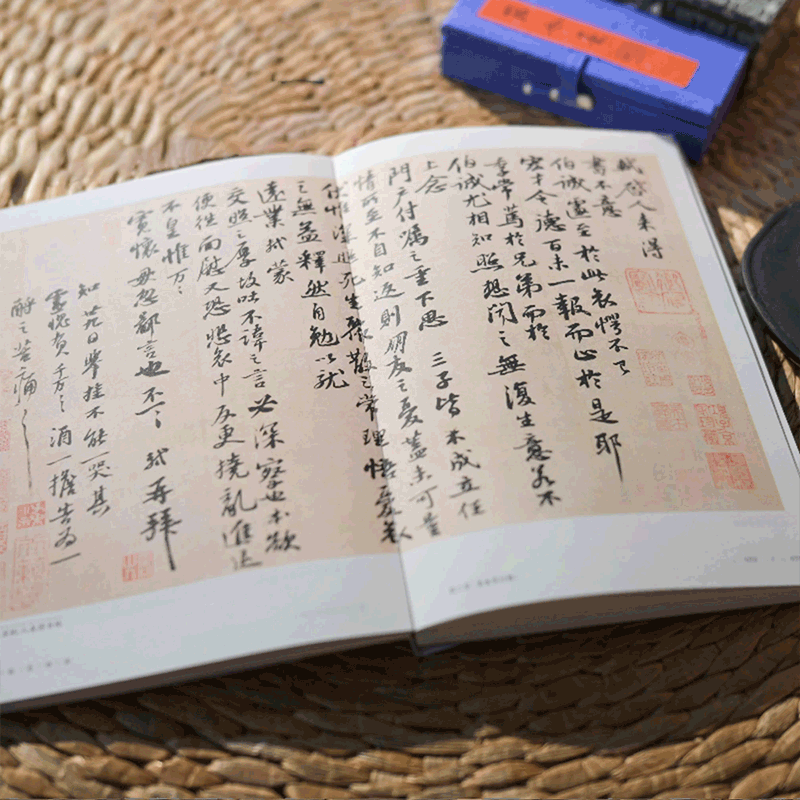 軾啓人來得
書不意
伯誠遽至於此哀愕不已
宏才令德百未一報而止於是耶
季常篤於兄弟而於
伯誠尤相知照想聞之無復生意若不
上念
門户付囑之重下思三子皆未成立任
情所至不自知返則朋友之憂蓋未可量
伏惟深照死生聚散之常理悟憂哀
之無益釋然自勉以就
遠業軾蒙
交照之厚故吐不諱之言必深察也本欲
便往面慰又恐悲哀中反更撓亂進退
不皇惟万万
寬懷毋忽鄙言也不一一軾再拜
知廿九日舉挂不能一哭其
靈愧負千万千万酒一擔告為一
酹之苦痛苦痛